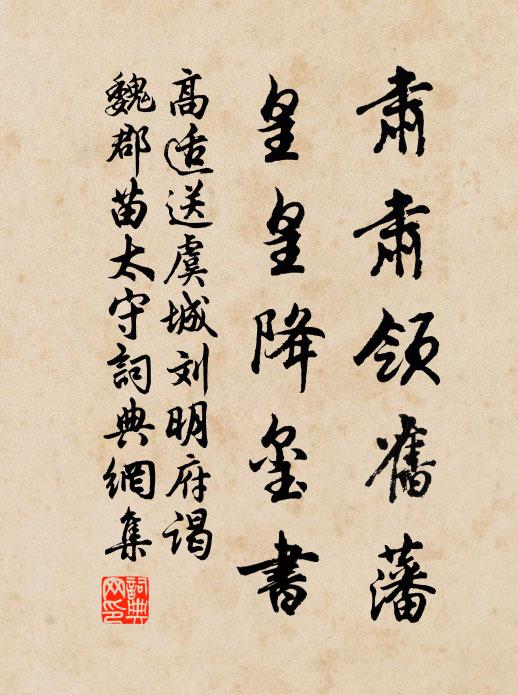 肃肃领舊藩
皇皇降玺書
高适送虞城刘明府谒
魏郡苗太守詞典網集
詞典网印